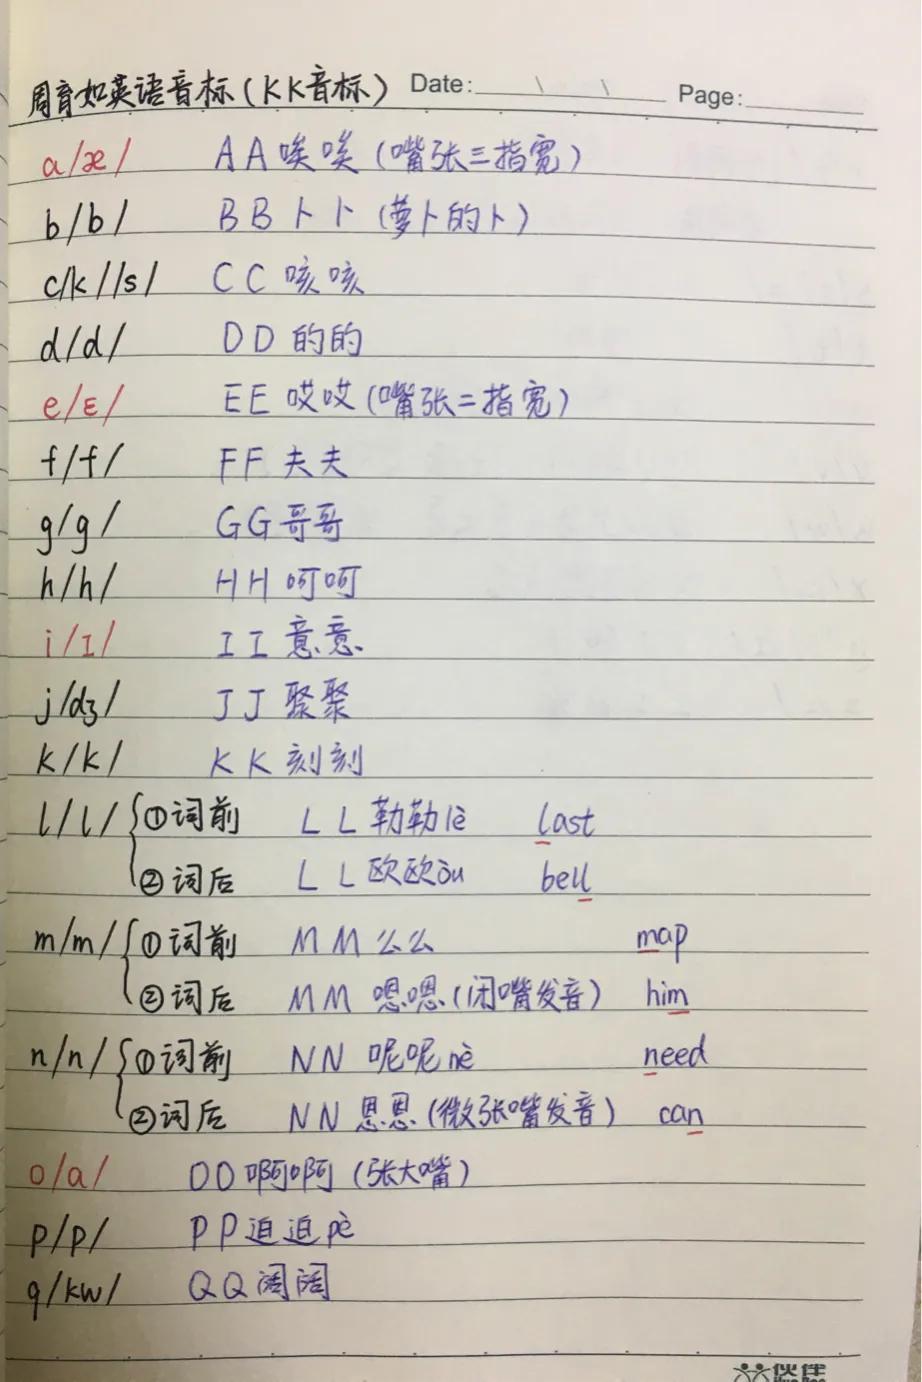 周育如英语音标(KK音标) Date: Page:
a/æ/ AA唉唉(嘴张三指宽)
b/b/ BB卜卜(萝卜的卜)
c/k//s/ CC咳咳
d/d/ DD的的
e/ɛ/ EE哎哎(嘴张二指宽)
f/f/ FF夫夫
g/g/ GG哥哥
h/h/ HH呵呵
i/I/ II意意
j/dʒ/ JJ聚聚
k/k/ KK刻刻
l/l/ ①词前 LL勒勒lè last
②词后 LL欧欧òu bell
m/m/ ①词前 MM么么 map
②词后 MM嗯嗯(闭嘴发音) him
n/n/ ①词前 NN呢呢nè need
②词后 NN恩恩(微张嘴发音) can
o/a/ OO啊啊(张大嘴)
p/p/ PP迫迫pè
q/kw/ QQ阔阔
伙伴